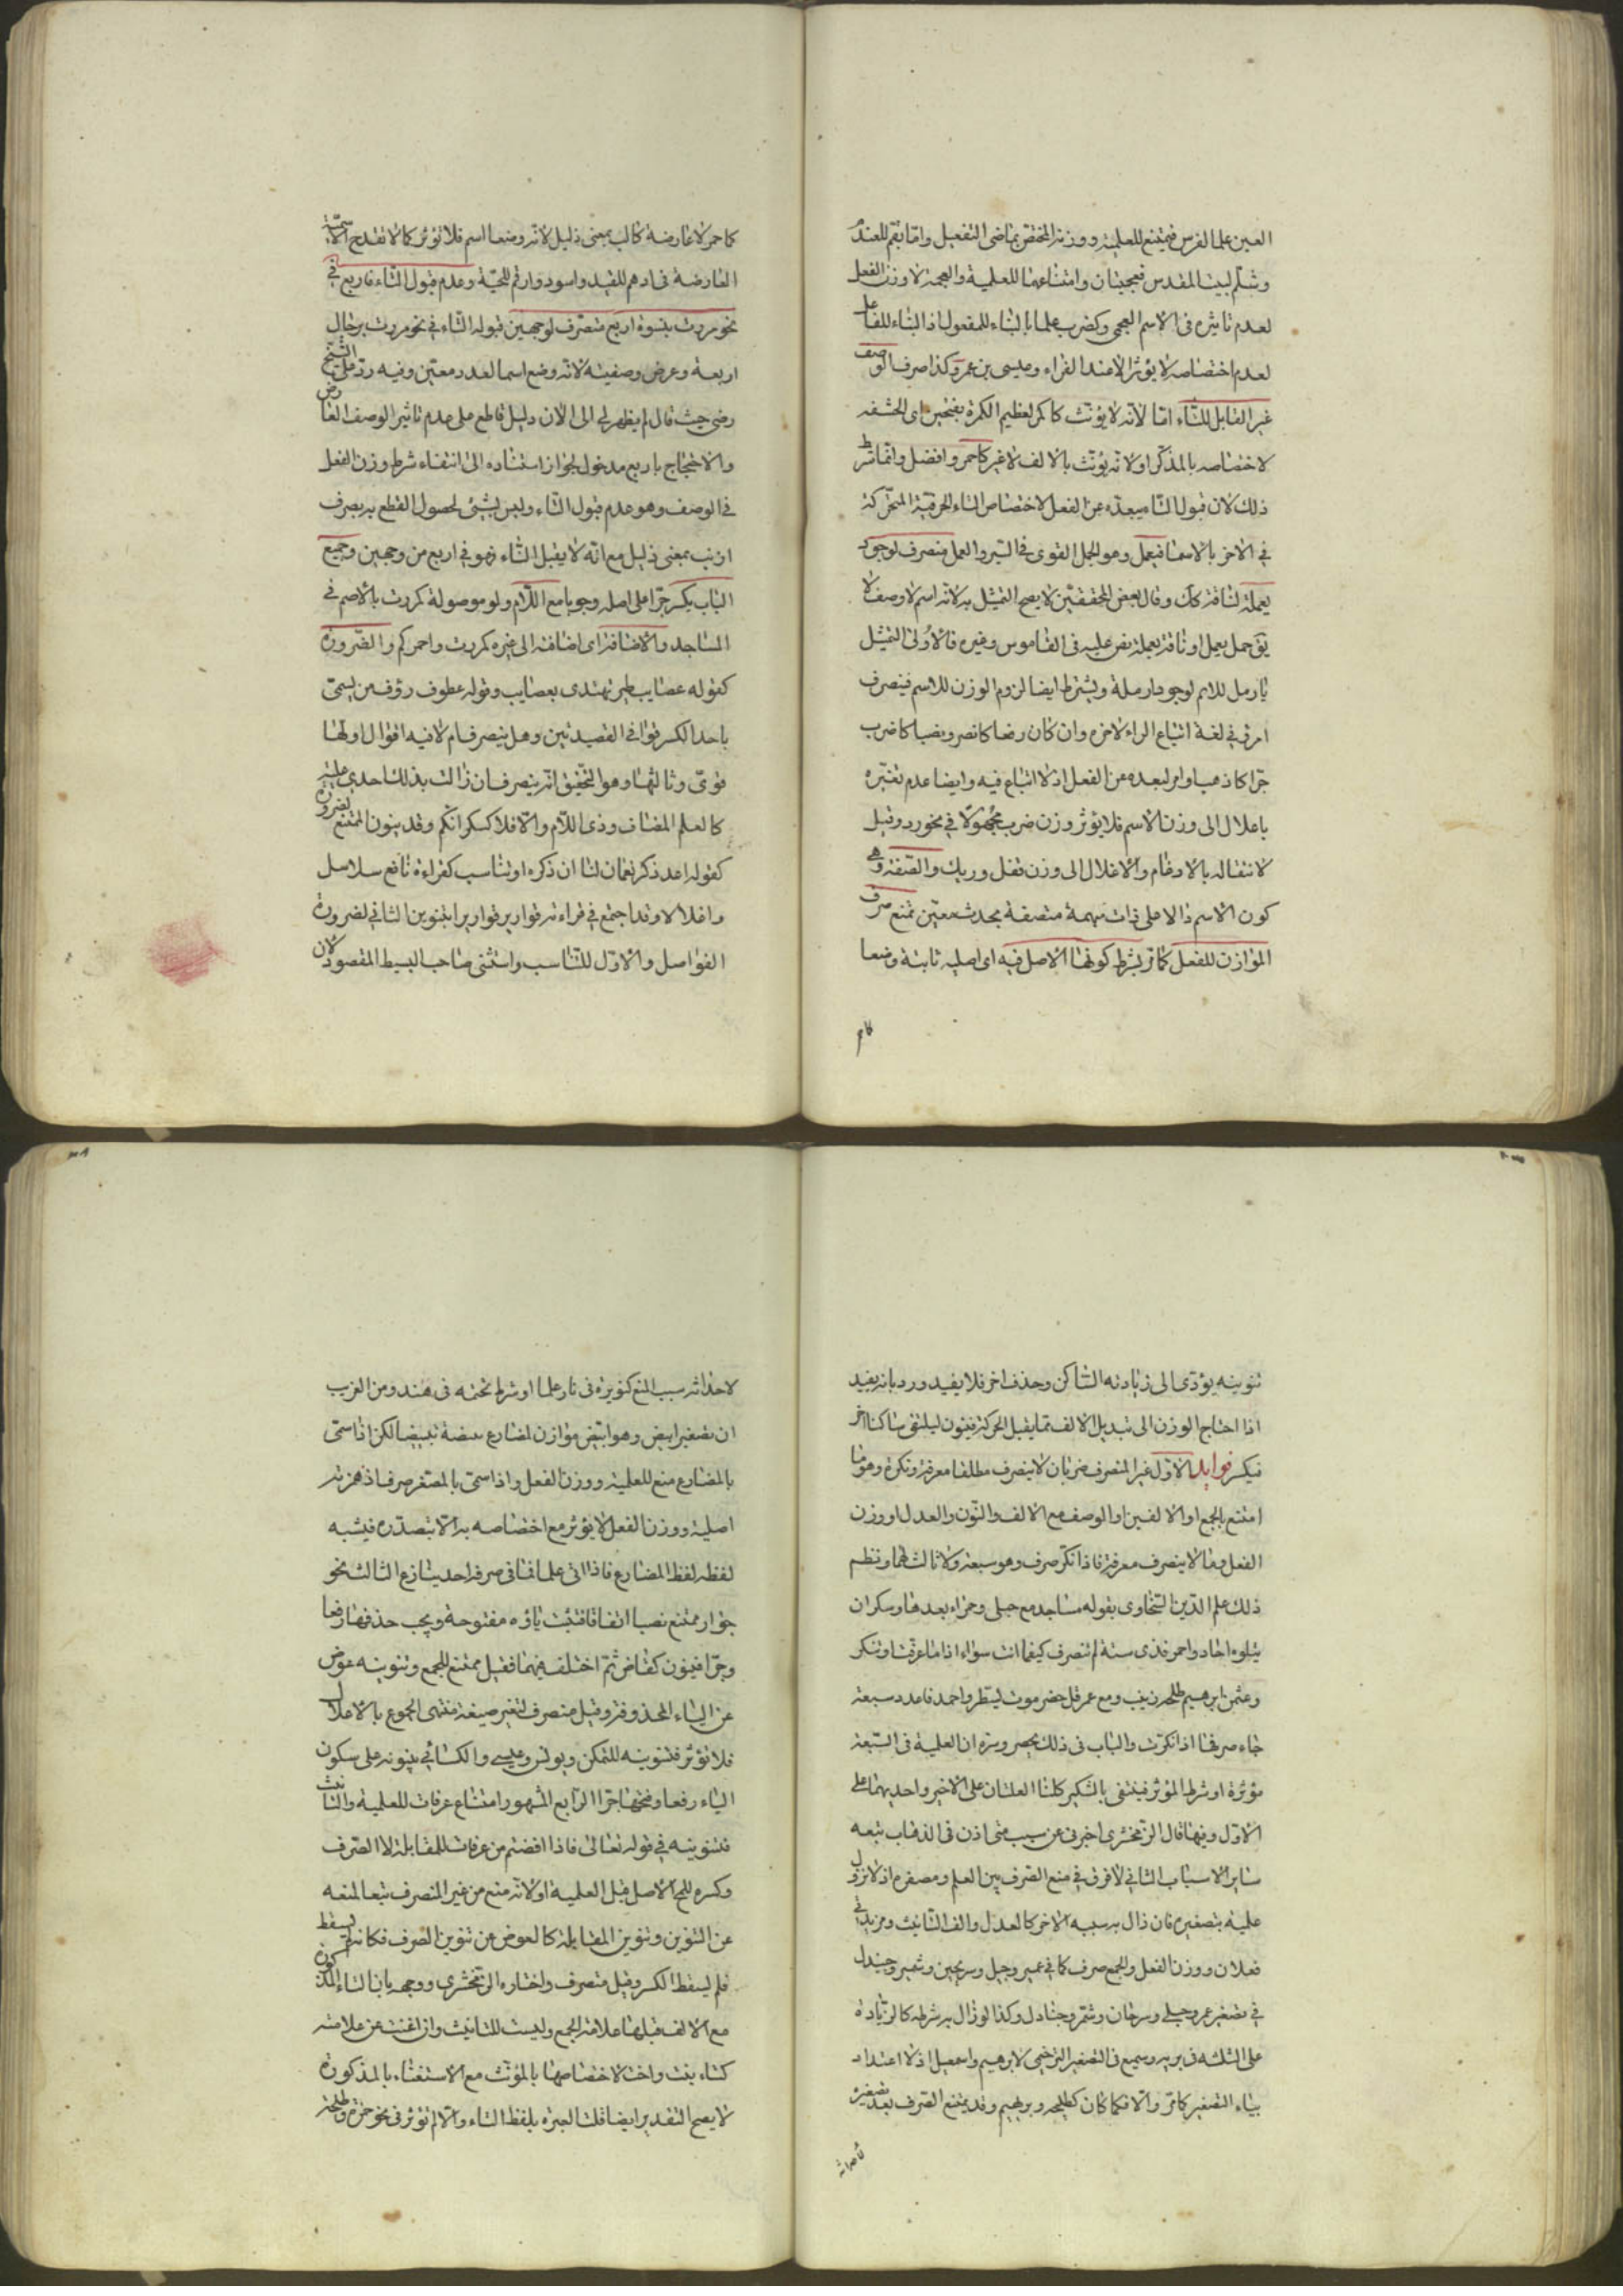 العين علما لفرس فيمتنع للعلمية ووزنه المختص بماضى التفعيل واما بقم للعندم
وشلم لبيت المقدس فعجميتان وامتناعهما للعلمية والعجمة لا وزن الفعل
لعدم تاثيره فى الاسم العجمى وكضرب علما بالبناء للمفعول اذ البناء للفاعل
لعدم اختصاصه لا يؤثر الا عند الفراء وعيسى بن عمر وكذا صرف الوصف
غير القابل للتاء اما لانه لا يؤنث كاكمر لعظيم الكمرة بفتحتين اى الحشفه
لاختصاصه بالمذكر او لانه يؤنث بالالف لا غير كاحمر وافضل وانما شرط
ذلك لان قبول التاء يبعده عن الفعل لاختصاص التاء الحرفية المتحركة
في الاخر بالاسماء فيعمل وهو الجمل القوى فى السير والعمل منصرف لوجود
يعملة لناقة كك وقال بعض المحققين لا يصح التمثيل به لانه اسم لا وصف لا
يق جمل يعمل او ناقة يعملة نص عليه فى القاموس وغيره فالاولى التمثيل
بارمل للارم لوجود ارملة ويشترط ايضا لزوم الوزن للاسم فينصرف
امرؤ في لغة اتباع الراء لاخره وان كان رفعا كانصر ونصبا كاضرب
جرا كاذهب اوامر لبعده عن الفعل اذ لا اتباع فيه وايضا عدم تغيره
باعلال الى وزن الاسم فلا يؤثر وزن ضرب مجهولا في نحو رد وقيل
لانتقاله بالادغام والاعلال الى وزن قفل وريك والصفة وهى
كون الاسم دالا على ذات مبهمة متصفة بحدث معين تمنع صرف
الموازن للفعل كما مر بشرط كونها الاصل فيه اى اصليه ثابتة وضعا
كام
كاحمر لا عارضة كالب بمعنى ذليل لانه وضعا اسم فلا تؤثر كما لا تقدح الاسمية
العارضة فى ادهم للقيد واسود وارقم للحية وعدم قبول التاء فاربع فى
نحو مررت بنسوة اربع منصرف لوجهين قبوله التاء في نحو مررت برجال
اربعة وعرض وصفيته لانه وضع اسما لعدد معين وفيه رد على الشيخ
رضى حيث قال لم يظهر لى الى الان دليل قاطع على عدم تاثير الوصف العارض
والاحتجاج باربع مدخول لجواز استناده الى انتفاء شرط وزن الفعل
في الوصف وهو عدم قبول التاء وليس بشئ لحصول القطع به بصرف
ارنب بمعنى ذليل مع انه لا يقبل التاء فهو في اربع من وجهين وجميع
الباب يكسر جرا على اصله وجوبا مع اللام ولو موصولة كمررت بالاصم في
المساجد والاضافة اى اضافته الى غيره كمررت واحمركم والضرورة
كقوله عصايب طير تهتدى بعصايب وقوله عطوف رؤف من يسمى
باحد الكسر قوافى القصيدتين وهل ينصرف ام لا فيه اقوال اولها
قوى وثالثها وهو التحقيق انه ينصرف ان زالت بذلك احدى علتيه
كالعلم المضاف وذى اللام والا فلا كسكرانكم وقد ينون الممتنع لضرورة
كقوله اعد ذكر نعمان لنا ان ذكره او تناسب كقراءة نافع سلاسل
واغلالا وقد اجتمع في قراءته قوارير قوارير ابتنوين الثاني لضرورة
الفواصل والاول للتناسب واستثنى صاحب البسيط المقصور لان
تنوينه يؤدى الى زيادته الساكن وحذف اخر فلا يفيد ورد بانه يفيد
اذا احتاج الوزن الى تبديل الالف بما يقبل الحركة فينون ليلتقى ساكنا اخر
فيكسر فوايد الاول غير المنصرف ضربان لا ينصرف مطلقا معرفة ونكرة وهو ما
امتنع بالجمع او الالفين او الوصف مع الالف والنون والعدل او وزن
الفعل وما لا ينصرف معرفة فاذا نكر صرف وهو سبعة ولا ثالث لهما ونظم
ذلك علم الدين السخاوى بقوله مساجد مع حبلى وحمراء بعدها وسكران
يتلوه احاد واحمر فذى ستة لم تنصرف كيفما اتت سواء اذا ما عرفت او تنكر
وعثمن ابرهيم طلحة زينب ومع عمر قل حضرموت يسطر واحمد فاعدد سبعة
جاء صرفها اذا نكرت والباب فى ذلك يحصر وسره ان العلمية فى السبعة
مؤثرة او شرط المؤثر فينتفى بالتنكير كلتا العلتان على الاخير واحديهما على
الاول وفيها قال الزمخشرى اخبرنى عن سبب متى اذن فى الذهاب تبعه
ساير الاسباب الثاني لا فرق في منع الصرف بين العلم ومصغره اذ لا تزول
علميه بتصغيره فان زال به سببه الاخر كالعدل والف التانيث ومزيدى
فعلان ووزن الفعل والجمع صرف كما في عمير وحبيل وسريحين وشمير وجنيدل
في تصغير عمر وحبلى وسرحان وشمر وجنادل وكذا لو زال به شرطه كالزيادة
على الثلثه فى بريه وسميع فى التصغير الترخيمى لابرهيم واسمعيل اذ لا اعتداد
بياء التصغير كما مر والا فكما كان كطليحه وبريهيم وقد يمتنع الصرف بعد تصغيره
لاحداثه سبب المنع كنويرة فى نار علما او شرط تحتمه فى هند ومن الغريب
ان تصغير ابيض وهو ابيض موازن لمضارع بيضة تبييضا لكن اذا سمى
بالمضارع منع للعلمية ووزن الفعل واذا سمى بالمصغر صرف اذ همزته
اصلية ووزن الفعل لا يؤثر مع اختصاصه به الا بتصدره فيشبه
لفظه لفظ المضارع فاذا اتى علما فتافى صرفه احد ينازع الثالث نحو
جوار ممتنع نصبا اتفاقا فتثبت ياؤه مفتوحة ويجب حذفها رفعا
وجرا فينون كقاض ثم اختلف فيهما فقيل ممتنع للجمع وتنوينه عوض
عن الياء المحذوفة وقيل منصرف لتغير صيغة منتهى الجموع بالاعلال
فلا تؤثر فتنوينه للتمكن ويونس وعيسى والكسائي يبنونه على سكون
الياء رفعا وفتحها جرا الرابع المشهور امتناع عرفات للعلمية والتانيث
فتنوينه في قوله تعالى فاذا افضتم من عرفات للمقابلة لا الصرف
وكسره للمح الاصل قبل العلمية او لانه منع من غير المنصرف تبعا لمنعه
عن التنوين وتنوين المقابلة كالعوض عن تنوين الصرف فكانه لم يسقط
فلم يسقط الكسر وقيل منصرف واختاره الزمخشرى ووجهه بان التاء المذكورة
مع الالف قبلها علامة الجمع وليست للتانيث وان اغنت عن علامته
كتاء بنت واخت لاختصاصها بالمؤنث مع الاستغناء بالمذكورة
لا يصح التقدير ايضا قلت العبرة بلفظ التاء والا لم تؤثر فى نحو حمزة وطلحة